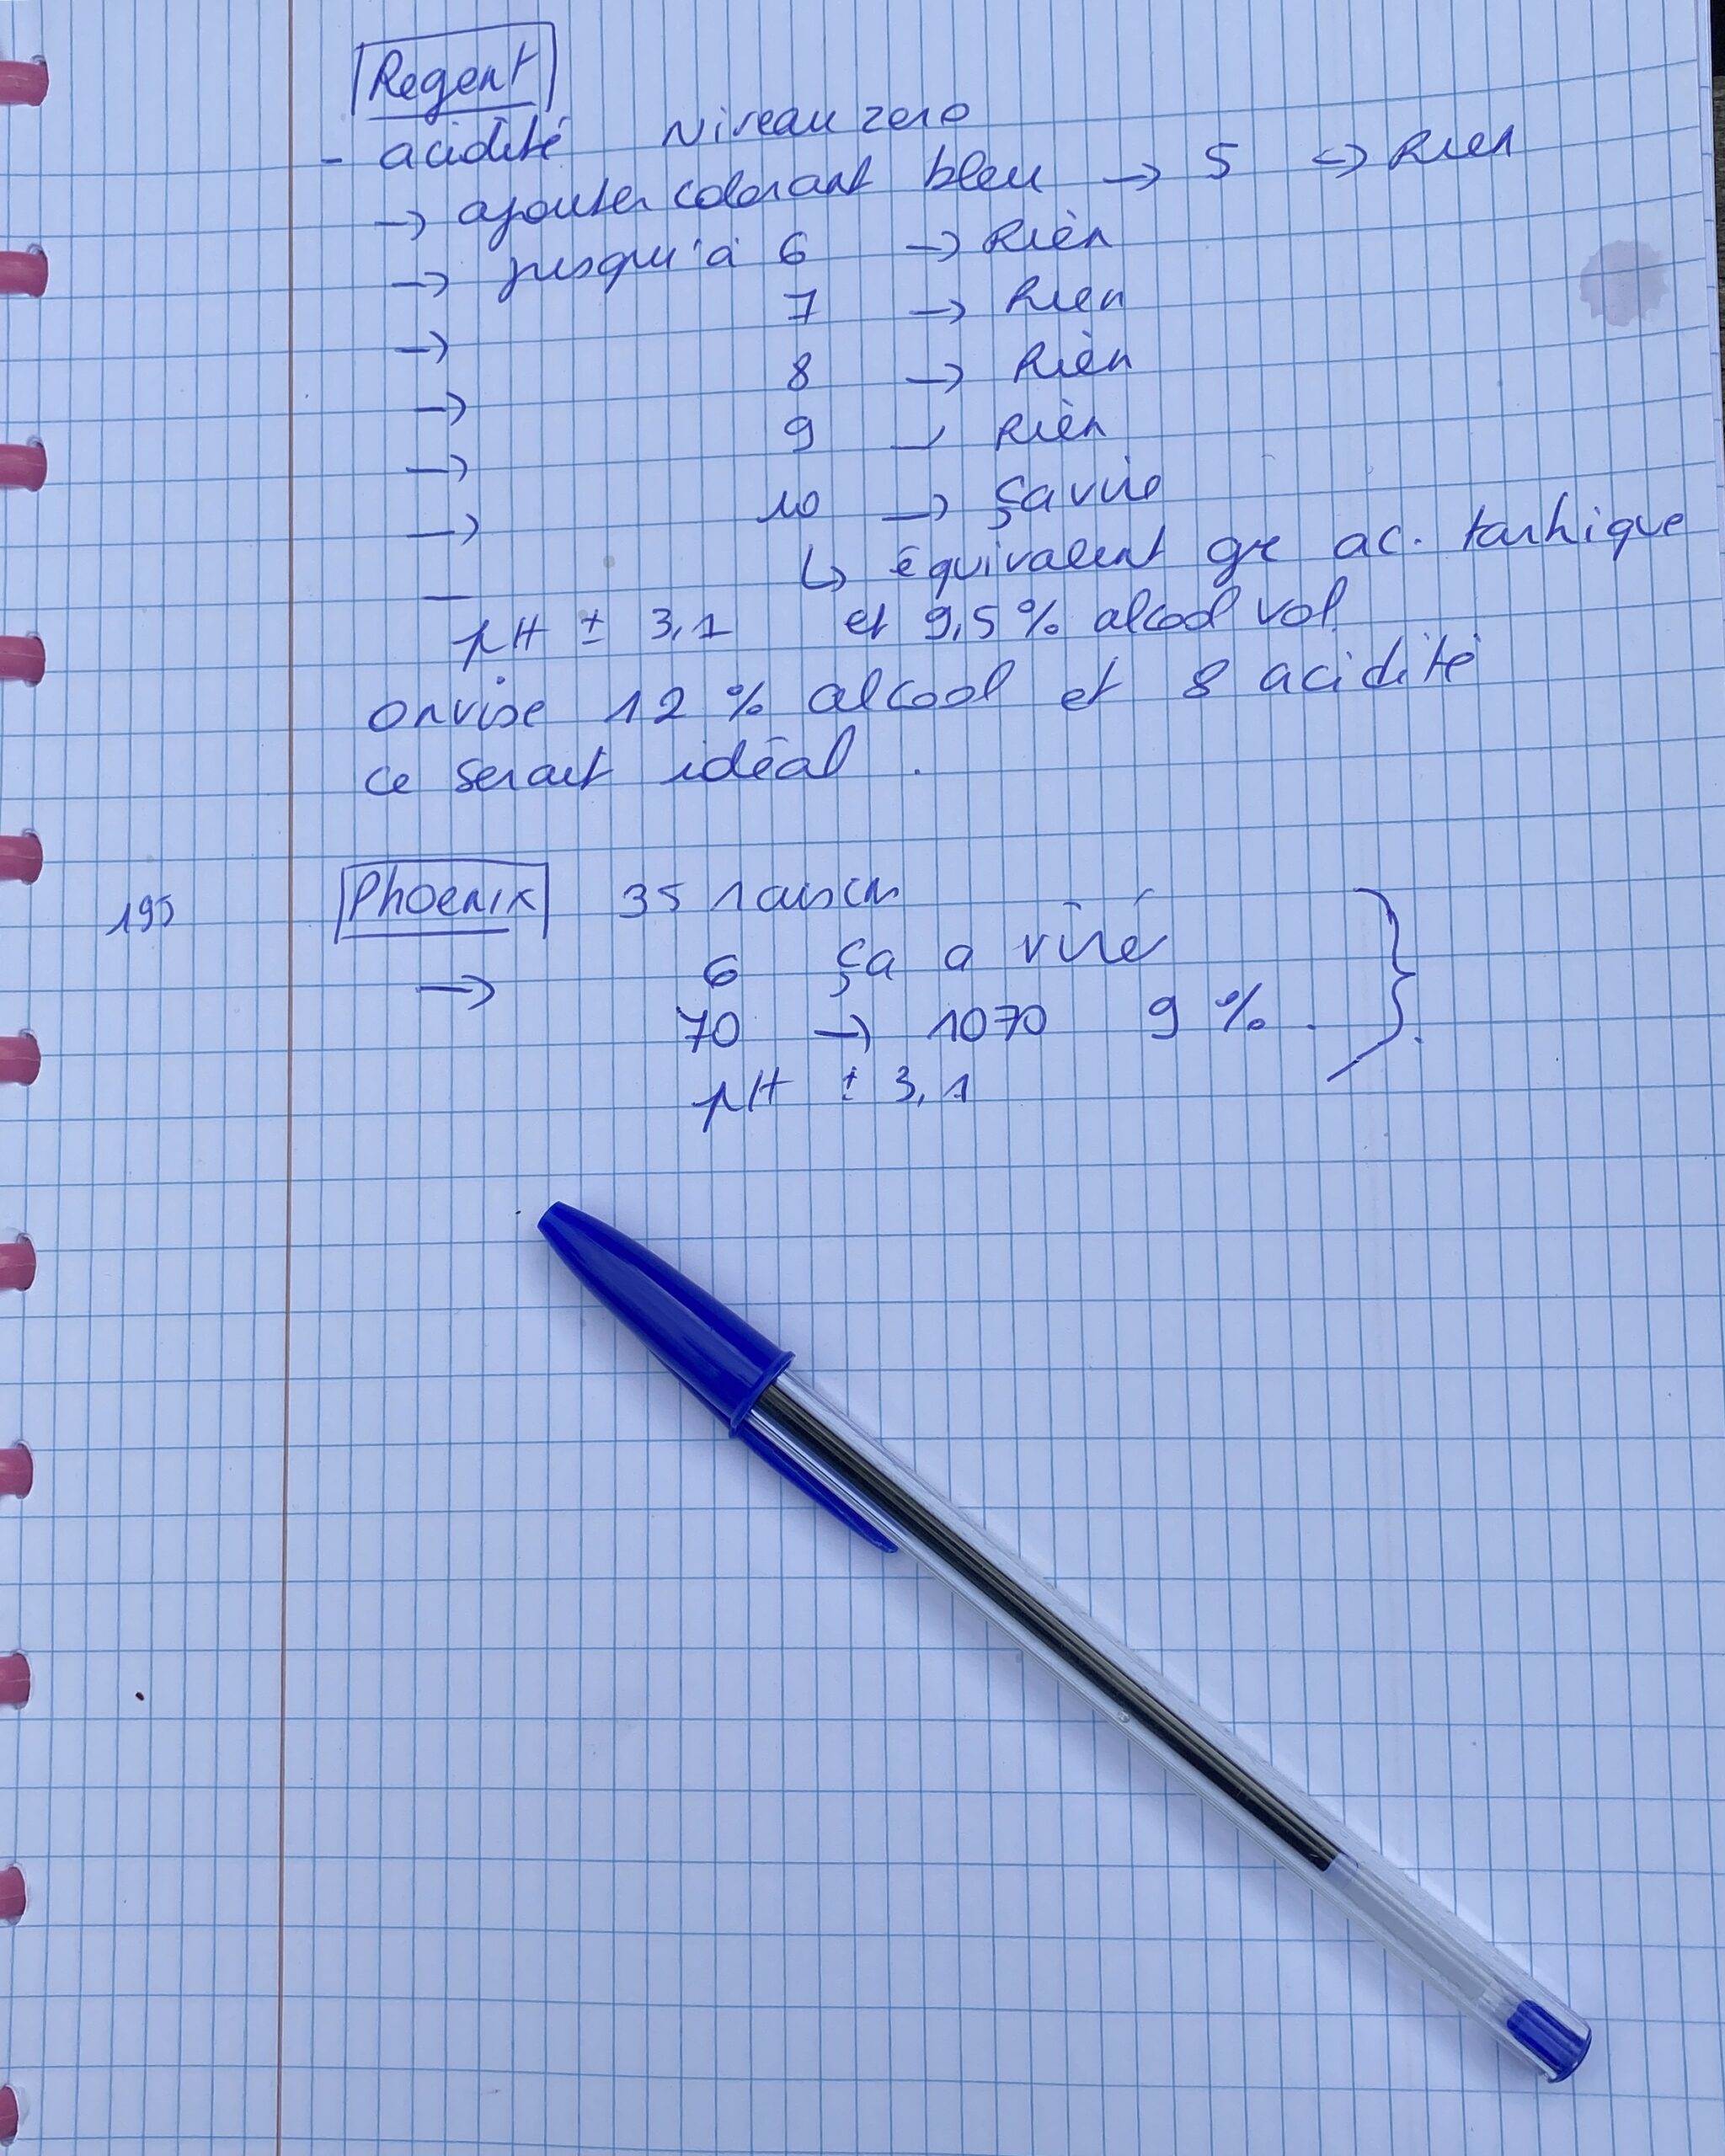 Regent
- acidité Niveau zero
→ ajouter colorant bleu → 5 → Rien
→ jusqu'à 6 → Rien
→ 7 → Rien
→ 8 → Rien
→ 9 → Rien
→ 10 → ça vire
↳ équivalent gr ac. tartrique
pH ± 3,1 et 9,5 % alcool vol
on vise 12 % alcool et 8 acidité
ce serait idéal.
195 Phoenix 35 raisin
→ 6 ça a viré
70 → 1070 9 %.
pH ± 3,1